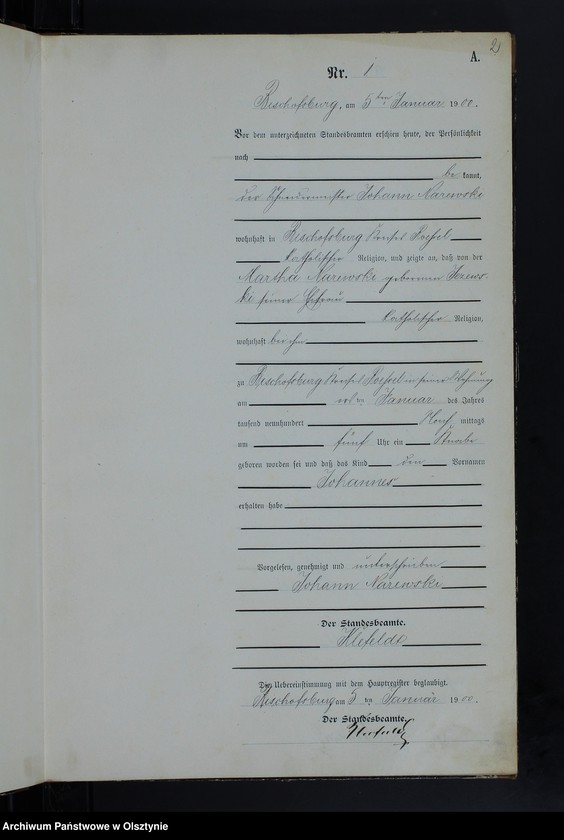 29
A.
Nr. 1
Bischofsburg, am 5ten Januar 1900.
Vor dem unterzeichneten Standesbeamten erschien heute, der Persönlichkeit
nach
be kannt,
der Schneidermeister Johann Narewski
wohnhaft in Bischofsburg Kreises Roessel
katholischer Religion, und zeigte an, daß von der
Martha Narewski geborenen
ki seiner Ehefrau
katholischer Religion,
wohnhaft bei ihm
zu Bischofsburg Kreises Roessel in seiner Wohnung
am ten Januar des Jahres
tausend neunhundert Nach mittags
um fünf Uhr ein Knabe
geboren worden sei und daß das Kind den Vornamen
Johannes
erhalten habe
Vorgelesen, genehmigt und unterschrieben
Johann Narewski
Der Standesbeamte.
Klefeldt
Die Uebereinstimmung mit dem Hauptregister beglaubigt.
Bischofsburg am 5ten Januar 1900.
Der Standesbeamte.
Klefeldt
Archiwum Państwowe w Olsztynie